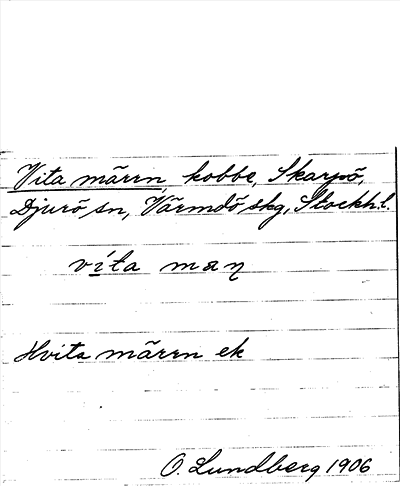 Vita märrn, kobbe, Skarpö,
Djurö sn, Värmdö skg, Stockh.l.
víta maꞃ
Hvita märrn ek
O. Lundberg 1906